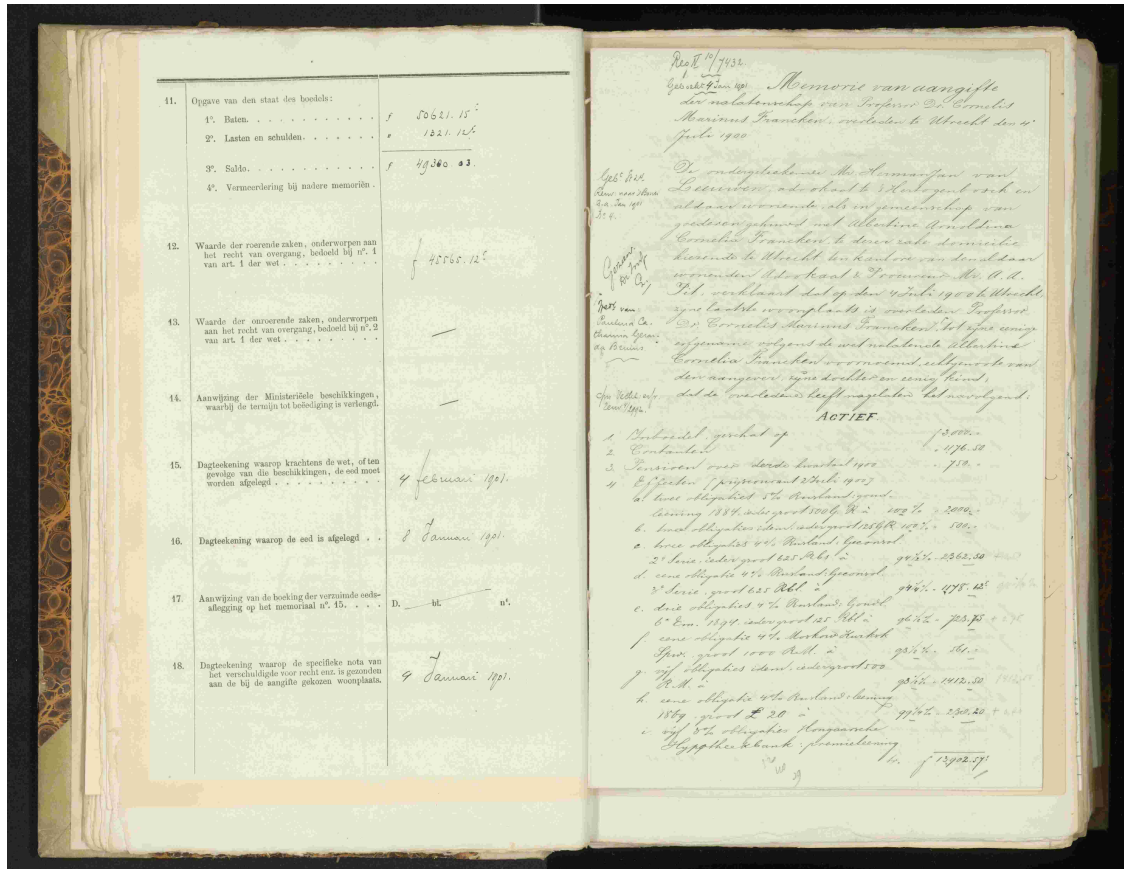 11. Opgave van den staat des boedels:
1º. Baten. . . . . . . . . . . . . f 50621.15⁵
2º. Lasten en schulden. . . . . . . . " 1321.12⁵
3º. Saldo. . . . . . . . . . . . f 49300.03.
4º. Vermeerdering bij nadere memoriën .
12. Waarde der roerende zaken, onderworpen aan
het recht van overgang, bedoeld bij nº. 1
van art. 1 der wet . . . . . . . . . f 45565.12⁵
13. Waarde der onroerende zaken, onderworpen
aan het recht van overgang, bedoeld bij nº. 2
van art. 1 der wet . . . . . . . . . —
14. Aanwijzing der Ministeriëele beschikkingen,
waarbij de termijn tot beëediging is verlengd. —
15. Dagteekening waarop krachtens de wet, of ten
gevolge van die beschikkingen, de eed moet
worden afgelegd . . . . . . . . . . 4 februari 1901.
16. Dagteekening waarop de eed is afgelegd . . 8 Januari 1901.
17. Aanwijzing van de boeking der verzuimde eeds-
aflegging op het memoriaal nº. 15. . . . . D. bl. nº.
18. Dagteekening waarop de specifieke nota van
het verschuldigde voor recht enz. is gezonden
aan de bij de aangifte gekozen woonplaats. 9 Januari 1901.
Reg II 10/7432
Geboekt 4 Jan 1901 Memorie van aangifte
der nalatenschap van Professor Dr. Cornelis
Marinus Francken, overleden te Utrecht den 4
Juli 1900
De ondergeteekende Mr. Herman Jan van
Leeuwen, advokaat te 's Hertogenbosch en
aldaar wonende, als in gemeenschap van
goederen gehuwd met Albertine Arnoldina
Cornelia Francken, te dezer zake domicilie
kiezende te Utrecht ten kantore van den aldaar
wonenden Advokaat & Procureur Mr. A. A.
Pit, verklaart dat op den 4 Juli 1900 te Utrecht,
zijne laatste woonplaats is overleden Professor
Dr. Cornelis Marinus Francken, tot zijne eenige
erfgename volgens de wet nalatende Albertine
Cornelia Francken voornoemd, echtgenoote van
den aangever, zijne dochter en eenig kind;
dat de overledene heeft nagelaten het navolgend:
Wedr van
Paulina Ca-
tharina Gerar-
da Bruins
ACTIEF.
1. Inboedel geschat op f 3,000.-
2 Contanten " 1176.50
3. Pensioen over derde kwartaal 1900 " 750.-
4 Effecten [prijscourant 2 Juli 1900]
a. twee obligatiën 5% Rusland goud
leening 1884. ieder groot 500 G. R à 100 % - 2000.-
b. twee obligatiën idem. ieder groot 125 GR 100% - 500.-
c. twee obligatiën 4% Rusland. Geconsol.
2e Serie. ieder groot 625 Rbs à 94½% - 2362.50
d. eene obligatie 4% Rusland. Geconsol.
3e Serie. groot 625 Rbl. à 94¼% - 1178.12⁵
e. drie obligatiën 4% Rusland. Goudl.
6e Em. 1894. ieder groot 125 Rbl à 96½% - 723.75
f. eene obligatie 4% Moskou Kursk
Spw. groot 1000 R.M. à 93½% - 561.-
g. vijf obligatiën idem. ieder groot 500
R.M. à - 1412.50
h. eene obligatie 4% Rusland leening
1869. groot £ 20 à - 238.20
i. vijf 3% obligatiën Hongaarsche
Hypotheekbank. premieleening
f 13,902.57⁵